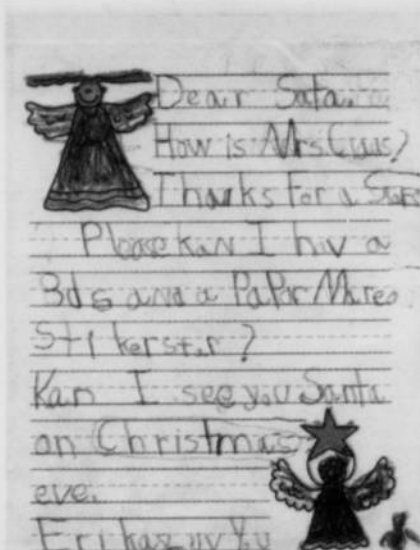 Dear Sata.
How is Mrs Cluas?
Thanks For a
Please kan I hiv a
3ds and a PaPer Mareo
Stikerstar?
Kan I see you Santa
on Christmas
eve.